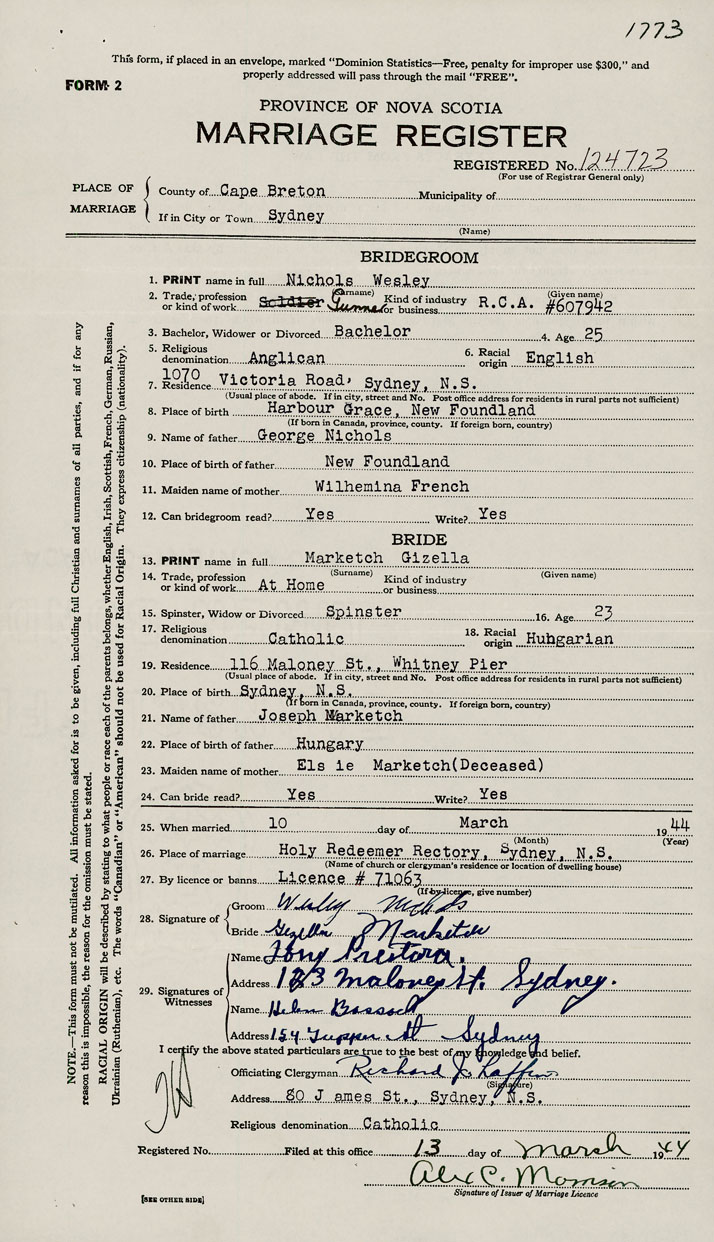 1773
This form, if placed in an envelope, marked "Dominion Statistics—Free, penalty for improper use $300," and
properly addressed will pass through the mail "FREE".
FORM 2
PROVINCE OF NOVA SCOTIA
MARRIAGE REGISTER
REGISTERED No. 124723
(For use of Registrar General only)
PLACE OF MARRIAGE
County of Cape Breton Municipality of
If in City or Town Sydney
(Name)
BRIDEGROOM
1. PRINT name in full Nichols Wesley
(Surname) (Given name)
2. Trade, profession or kind of work Soldier Gunner Kind of industry or business R.C.A. #607942
3. Bachelor, Widower or Divorced Bachelor 4. Age 25
5. Religious denomination Anglican 6. Racial origin English
7. Residence 1070 Victoria Road, Sydney, N.S.
(Usual place of abode. If in city, street and No. Post office address for residents in rural parts not sufficient)
8. Place of birth Harbour Grace, New Foundland
(If born in Canada, province, county. If foreign born, country)
9. Name of father George Nichols
10. Place of birth of father New Foundland
11. Maiden name of mother Wilhemina French
12. Can bridegroom read? Yes Write? Yes
BRIDE
13. PRINT name in full Marketch Gizella
(Surname) (Given name)
14. Trade, profession or kind of work At Home Kind of industry or business
15. Spinster, Widow or Divorced Spinster 16. Age 23
17. Religious denomination Catholic 18. Racial origin Hungarian
19. Residence 116 Maloney St., Whitney Pier
(Usual place of abode. If in city, street and No. Post office address for residents in rural parts not sufficient)
20. Place of birth Sydney, N.S.
(If born in Canada, province, county. If foreign born, country)
21. Name of father Joseph Marketch
22. Place of birth of father Hungary
23. Maiden name of mother Els ie Marketch(Deceased)
24. Can bride read? Yes Write? Yes
25. When married 10 day of March 1944
(Month) (Year)
26. Place of marriage Holy Redeemer Rectory, Sydney, N.S.
(Name of church or clergyman's residence or location of dwelling house)
27. By licence or banns Licence # 71063
(If by licence, give number)
28. Signature of
Groom Wesley Nichols
Bride Gizella Marketch
29. Signatures of Witnesses
Name Tony Prestara.
Address 123 Maloney St. Sydney.
Name Helen
Address 154 Tupper St Sydney
I certify the above stated particulars are true to the best of my knowledge and belief.
Officiating Clergyman Richard J.
(Signature)
Address 80 J ames St., Sydney, N.S.
Religious denomination Catholic
Registered No. Filed at this office 13 day of March 1944
Alex C. Morrison
Signature of Issuer of Marriage Licence
[SEE OTHER SIDE]
NOTE.—This form must not be mutilated. All information asked for is to be given, including full Christian and surnames of all parties, and if for any
reason this is impossible, the reason for the omission must be stated.
RACIAL ORIGIN will be described by stating to what people or race each of the parents belongs, whether English, Irish, Scottish, French, German, Russian,
Ukrainian (Ruthenian), etc. The words "Canadian" or "American" should not be used for Racial Origin. They express citizenship (nationality).